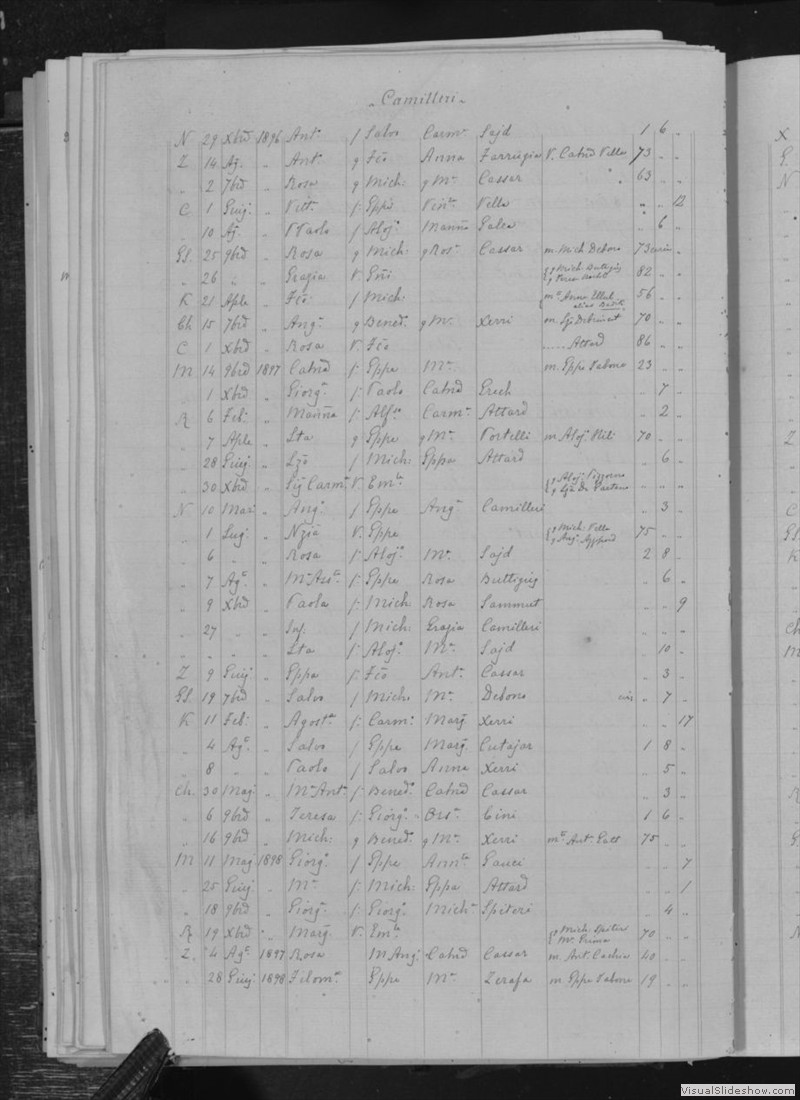 „ Camilleri „
N 29 Xbrē 1896 Antᵒ f Salvo Carmᵃ Sajd 1 6 „
Z 14 Ag. „ Antᵒ q Fcō Anna Farrugia V. Catnā Vella 73 „ „
„ 2 7brē „ Rosa q Mich: q Mᵃ Cassar „ 63 „ „
C 1 Giug. „ Vittᵃ f: Gppē Vinᵃ Vella „ „ 12
„ 10 Ag. „ Paolo f Alojᵒ Mannā Galea „ 6 „
Għ 25 9brē „ Rosa q Mich: q Rosᵃ Cassar m. Mich Debono 73 „
„ 26 „ „ Grazia V. 82 „ „
K 21 Aple „ Fcō f Mich: 56 „ „
Ch 15 7brē „ Angᵃ q Benedᵒ q Mᵃ Xerri 70 „ „
C 1 Xbrē „ Rosa V. Fcō ..... Attard 86 „ „
M 14 9brē 1897 Catnā f: Gppe Mᵃ m. Gppe Vabone 23 „ „
„ 1 Xbrē „ Giorgᵒ f: Paolo Catnā Grech „ 7 „
R 6 Feb: „ Mannā f: Carmᵃ Attard „ 2 „
„ 7 Aple „ Lta q Gppe q Mᵃ Portelli m. Alojᵒ 70 „ „
„ 28 Giug. „ Lzō f Mich: Gppa Attard „ 6 „
„ 30 Xbrē „ Carmᵃ V. Emᵉ „ „ „
N 10 Mar: „ Angᵒ f Gppe Angᵃ Camilleri „ 3 „
„ 1 Lug. „ Nziā V. Gppe q Mich: Vella 75 „ „
„ 6 „ „ Rosa f: Alojᵒ Mᵃ Sajd 2 8 „
„ 7 Agᵒ „ Mᵃ Assᵗᵃ f: Gppe Rosa Buttigieg „ 6 „
„ 9 Xbrē „ Paola f: Mich: Rosa Sammut „ „ 9
„ 27 „ „ f Mich: Grazia Camilleri
„ Lta f: Alojᵒ Mᵃ Sajd „ 10 „
Z 9 Giug. „ Gppa f: Fcō Antᵃ Cassar „ 3 „
Għ 19 7brē „ Salvo f Mich: Mᵃ Debono „ 7 „
K 11 Feb: „ Agostᵃ f: Carmᵒ Margᵃ Xerri „ „ 17
„ 4 Agᵒ „ Salvo f Gppe Margᵃ Cutajar 1 8 „
„ 8 „ „ Paolo f Salvo Anna Xerri „ 5 „
Ch. 30 Mag. „ Mᵃ Antᵃ f: Benedᵒ Catnā Cassar „ 3 „
„ 6 9brē „ Teresa f: Giorgᵒ Orsᵃ Cini 1 6 „
„ 16 9brē „ Mich: q Benedᵒ q Mᵃ Xerri mᵒ Antᵃ 75 „ „
M 11 Mag. 1898 Giorgᵒ f Gppe Gauci „ „ 7
„ 25 Giug. „ Mᵃ f: Mich: Gppa Attard „ „ 1
„ 18 9brē „ Giorgᵃ f: Giorgᵒ Michᵃ Spiteri „ 4 „
R 19 Xbrē „ Margᵃ V. Emᵉ q Mich: Spiteri 70 „ „
Z. 4 Agᵒ 1897 Rosa M Angᵒ Catnā Cassar m. Antᵒ Cachia 40 „ „
„ 28 Giug. 1898 Filomᵃ Gppe Mᵃ Zerafa m. Gppe Vabone 19 „ „
VisualSlideshow.com